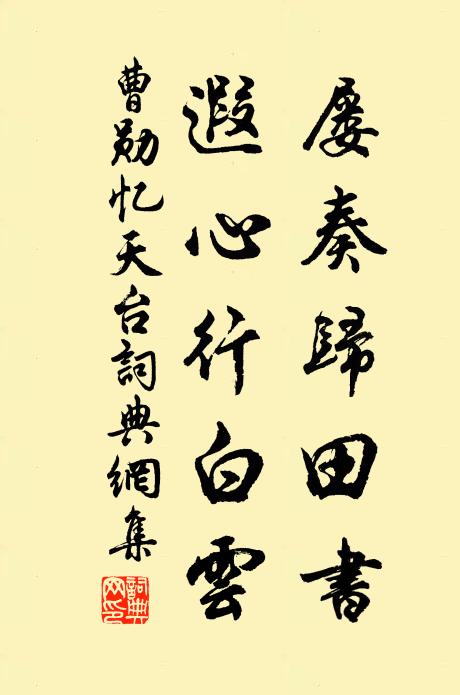 屢奏歸田書
遐心行白雲
曹勛忆天台詞典網集
詞典
网印